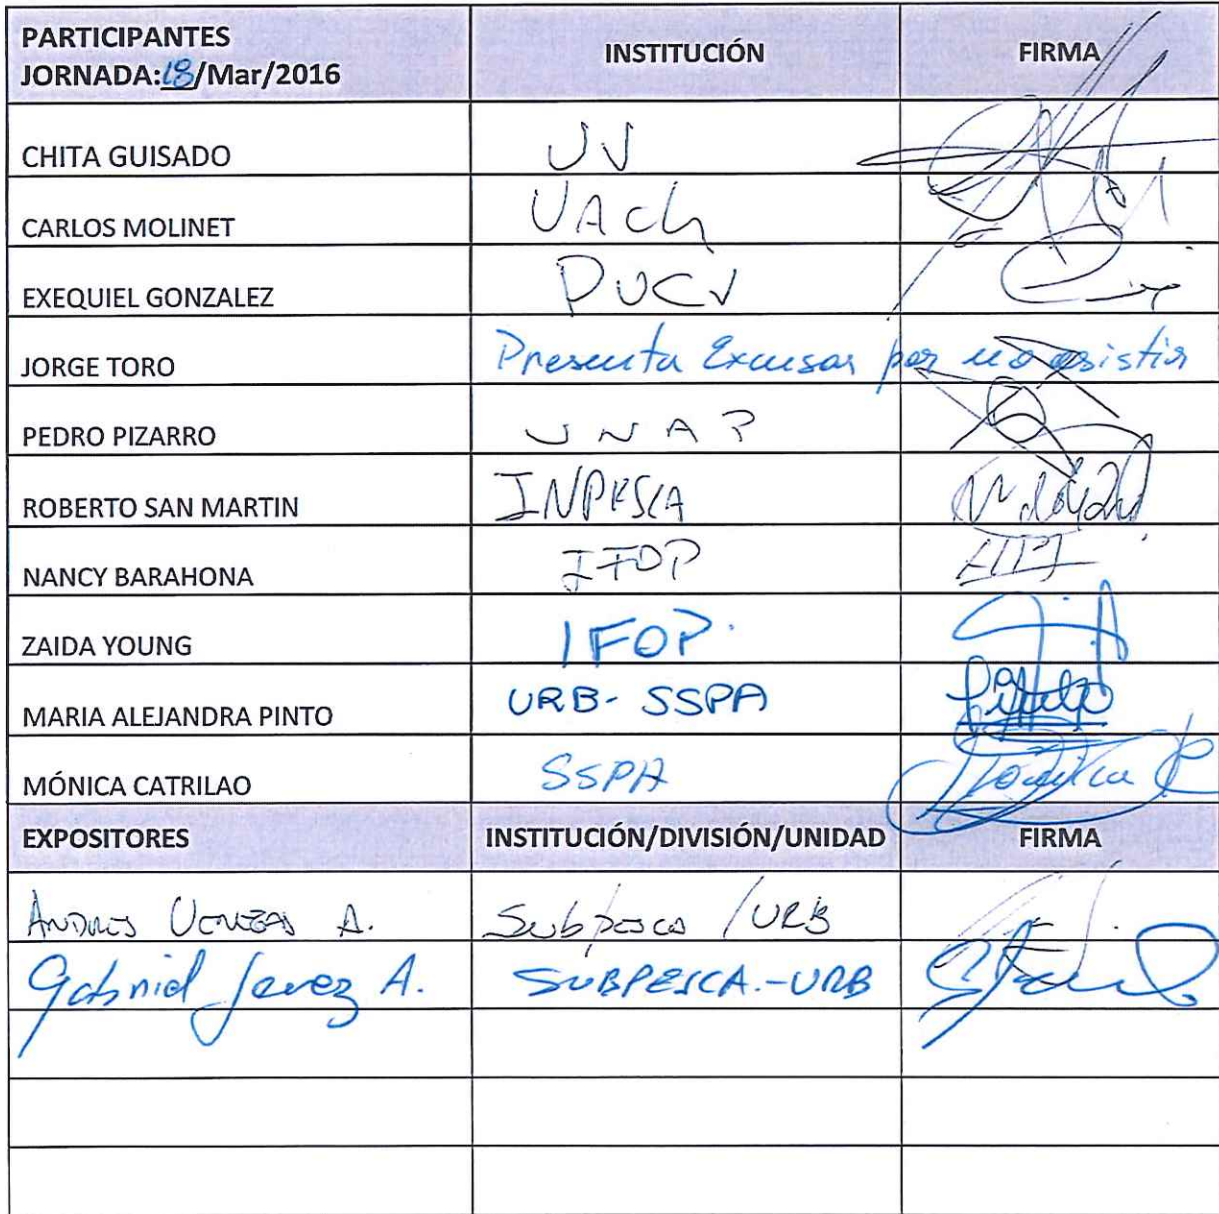 PARTICIPANTES
JORNADA:18/Mar/2016 INSTITUCIÓN FIRMA
CHITA GUISADO UV
CARLOS MOLINET UACh
EXEQUIEL GONZALEZ PUCV
JORGE TORO Presenta Excusas por no asistir
PEDRO PIZARRO UNAP
ROBERTO SAN MARTIN INPESCA
NANCY BARAHONA IFOP
ZAIDA YOUNG IFOP.
MARIA ALEJANDRA PINTO URB-SSPA
MÓNICA CATRILAO SSPA
EXPOSITORES INSTITUCIÓN/DIVISIÓN/UNIDAD FIRMA
ANDRES VENEGAS A. Subpesca /URB
Gabriel Jerez A. SUBPESCA.-URB